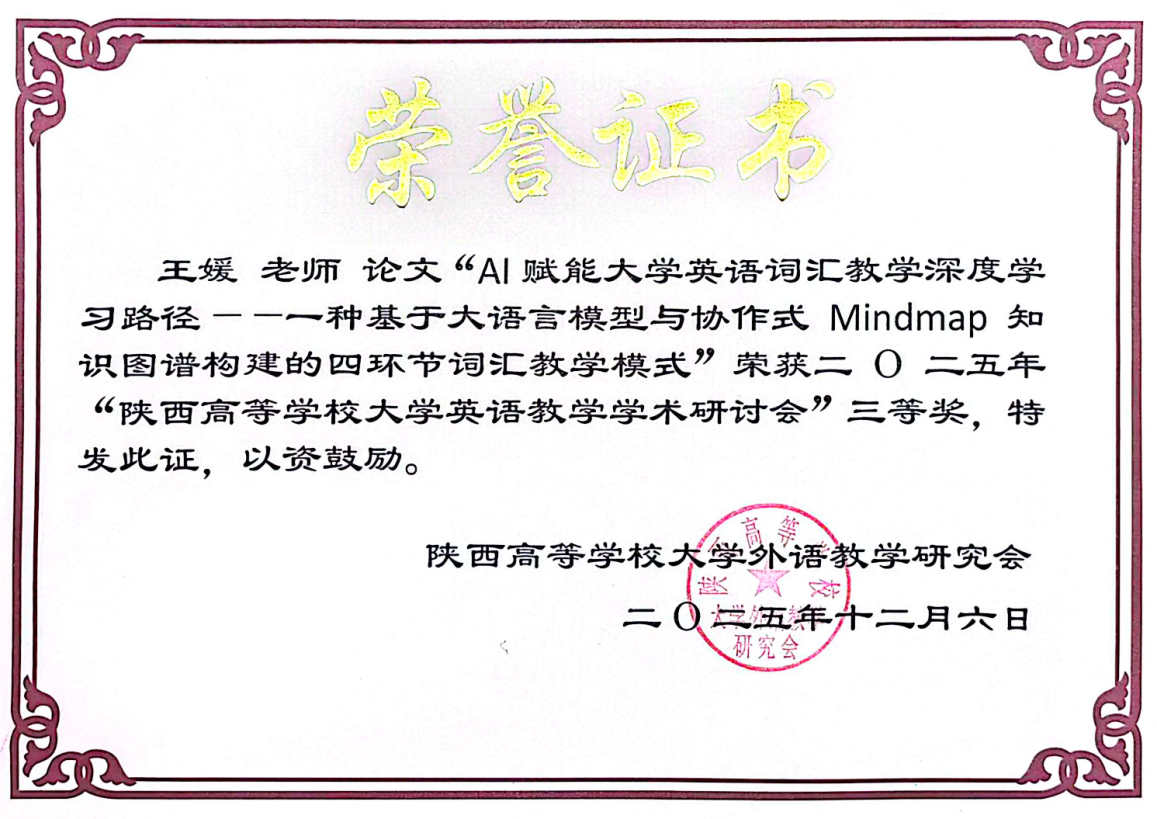 荣誉证书
王媛 老师 论文“AI 赋能大学英语词汇教学深度学
习路径——一种基于大语言模型与协作式 Mindmap 知
识图谱构建的四环节词汇教学模式”荣获二 O 二五年
“陕西高等学校大学英语教学学术研讨会”三等奖，特
发此证，以资鼓励。
陕西高等学校大学外语教学研究会
二 O 二五年十二月六日
陕西高等学校
大学外语教学
研究会